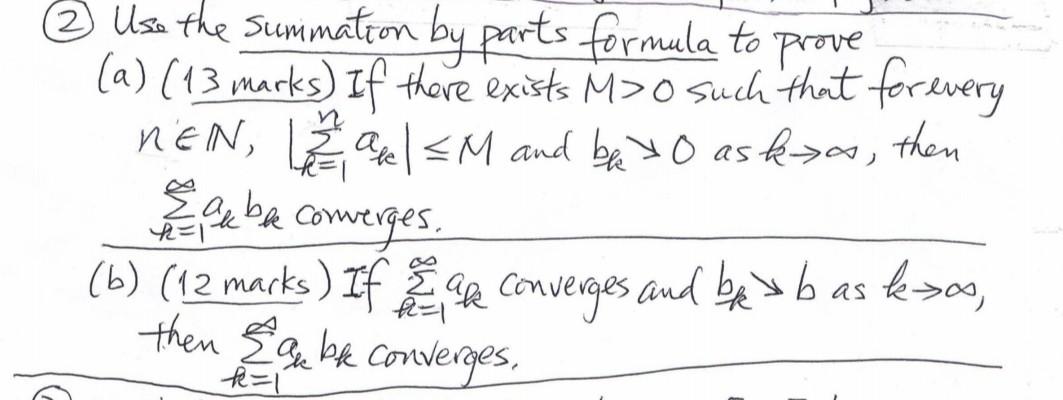 ② Use the summation by parts formula to prove
(a) (13 marks) If there exists M>0 such that for every
n∈ℕ, |∑_{k=1}^{n} a_k| ≤ M and b_k ↘ 0 as k→∞, then
∑_{k=1}^{∞} a_k b_k converges.
(b) (12 marks) If ∑_{k=1}^{∞} a_k converges and b_k ↘ b as k→∞,
then ∑_{k=1}^{∞} a_k b_k converges.